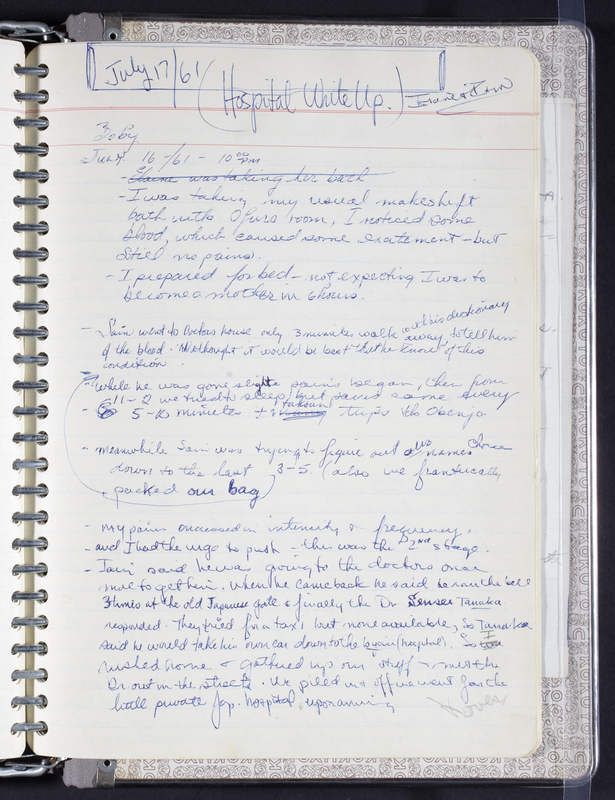 July 17/61
(Hospital Write Up.)
Baby
16 /61 - 10 00 PM
- Elaine was taking her bath
- I was taking my usual makeshift
bath with Ofuro room, I noticed some
blood, which caused some excitement - but
still no pains.
- I prepared for bed - not expecting I was to
become a mother in 6 hours.
- Iain went to Doctors house only 3 minutes walk away with his dictionary to tell him
of the blood. We thought it would be best that he know of this
condition.
- While he was gone slight pains began, then from
11-2 we tried to sleep, but pains came every
- 5-10 minutes + many trips to Obenjo.
- meanwhile Iain was trying to figure out names
down to the last 3-5. (also we frantically
- packed our bag)
- my pains increased in intensity & frequency.
- and I had the urge to push - this was the 2nd stage.
- Iain said he was going to the doctors once
more to get him. When he came back he said he ran the bell
3 times at the old Japanese gate & finally the Dr Sensei Tanaka
responded. They tried for a taxi but none available, so Tanaka
said he would take his own car down to the byoin (hospital). So I
rushed home & gathered up our stuff & met the
Dr out in the street. We piled in & off we went for the
little private Jap. hospital upon arriving
over